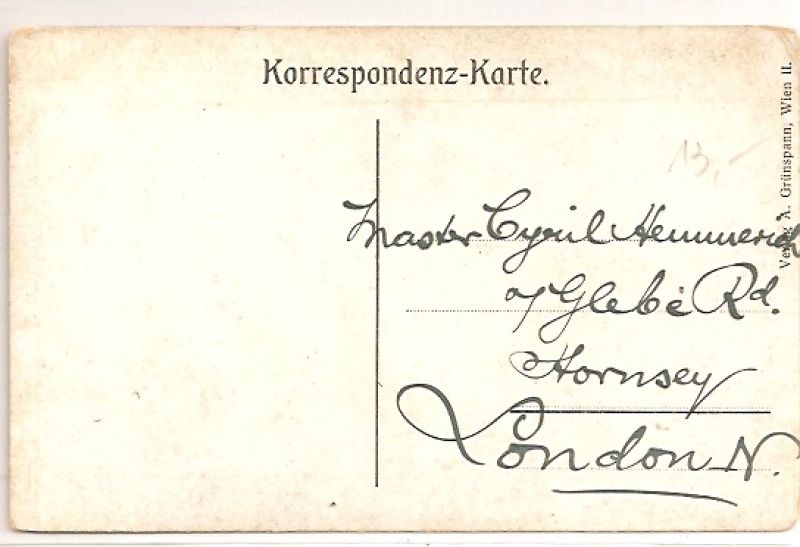 Korrespondenz-Karte.
Verlag A. Grünspann, Wien II.
13,-
Master Cyril Hemmerich
Glebe Rd.
Hornsey
London N.